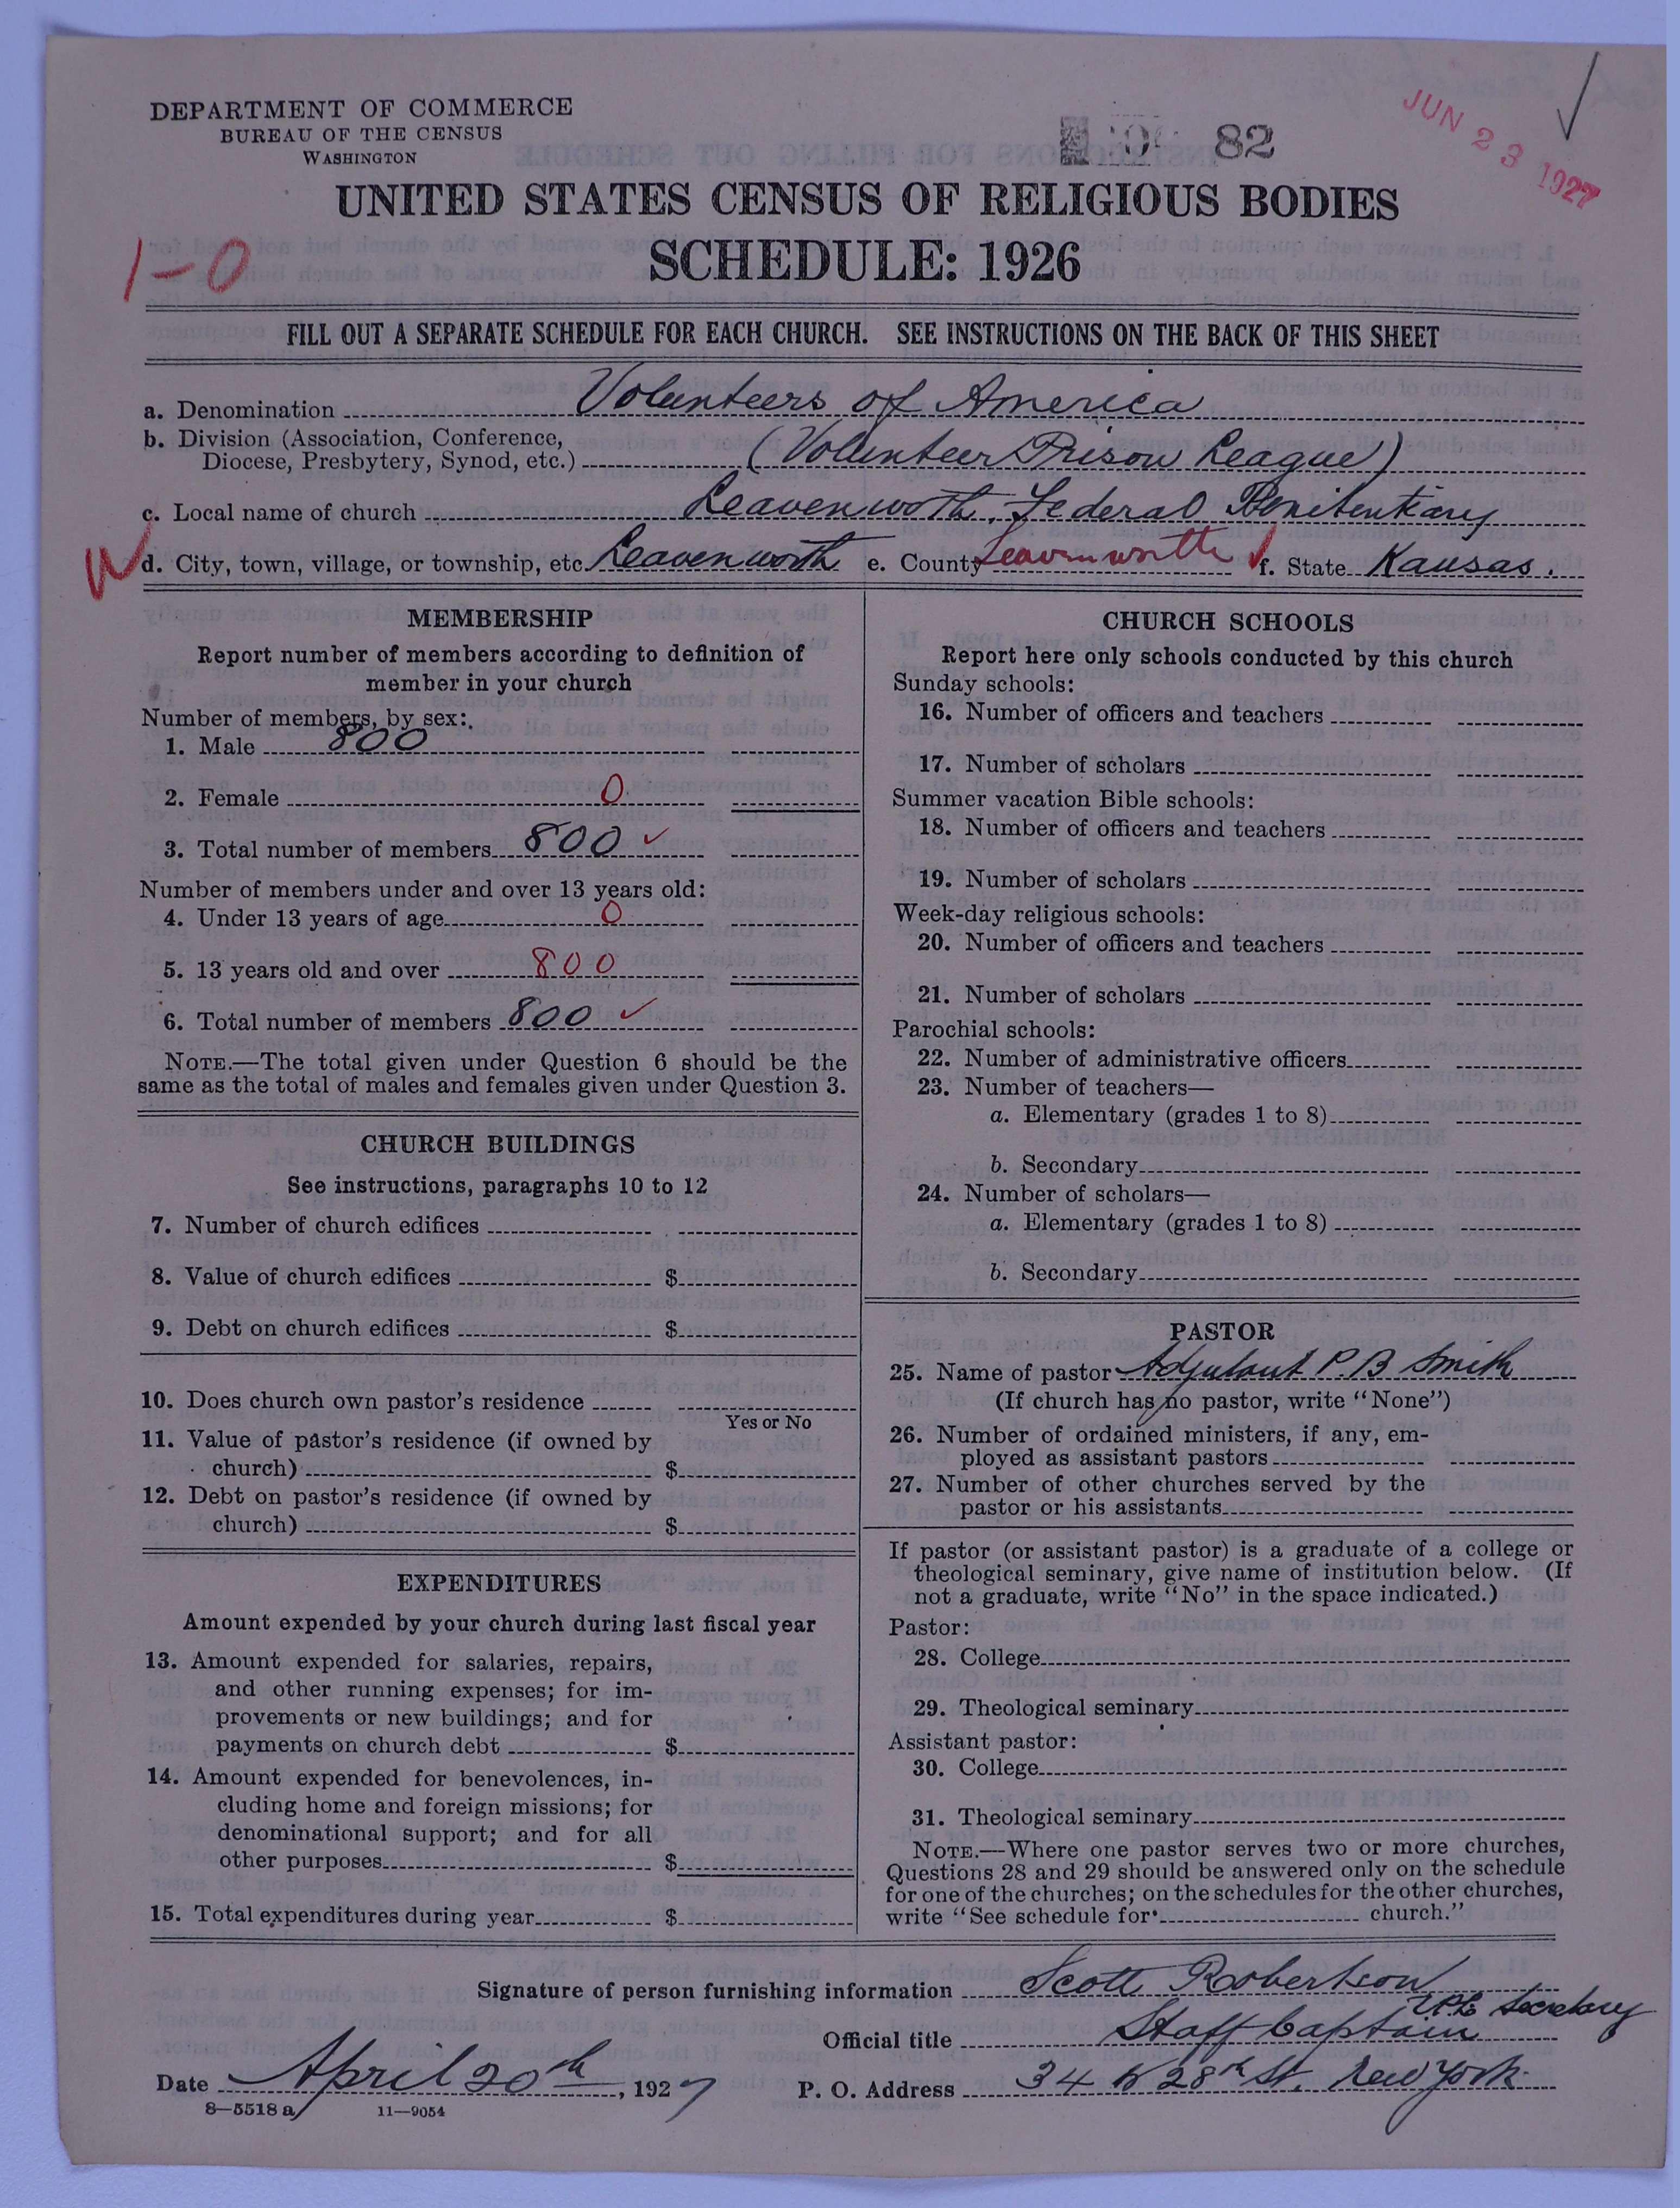 DEPARTMENT OF COMMERCE
BUREAU OF THE CENSUS
WASHINGTON
82
JUN 23 1927
UNITED STATES CENSUS OF RELIGIOUS BODIES
SCHEDULE: 1926
1-0
FILL OUT A SEPARATE SCHEDULE FOR EACH CHURCH. SEE INSTRUCTIONS ON THE BACK OF THIS SHEET
a. Denomination Volunteers of America
b. Division (Association, Conference,
Diocese, Presbytery, Synod, etc.) (Volunteer Prison League)
c. Local name of church Leavenworth, Federal Penitentiary
d. City, town, village, or township, etc. Leavenworth e. County Leavenworth f. State Kansas.
MEMBERSHIP
Report number of members according to definition of
member in your church
Number of members, by sex:
1. Male 800
2. Female 0
3. Total number of members 800
Number of members under and over 13 years old:
4. Under 13 years of age 0
5. 13 years old and over 800
6. Total number of members 800
NOTE.—The total given under Question 6 should be the
same as the total of males and females given under Question 3.
CHURCH BUILDINGS
See instructions, paragraphs 10 to 12
7. Number of church edifices
8. Value of church edifices $
9. Debt on church edifices $
10. Does church own pastor's residence
Yes or No
11. Value of pastor's residence (if owned by
church) $
12. Debt on pastor's residence (if owned by
church) $
EXPENDITURES
Amount expended by your church during last fiscal year
13. Amount expended for salaries, repairs,
and other running expenses; for im-
provements or new buildings; and for
payments on church debt $
14. Amount expended for benevolences, in-
cluding home and foreign missions; for
denominational support; and for all
other purposes $
15. Total expenditures during year $
CHURCH SCHOOLS
Report here only schools conducted by this church
Sunday schools:
16. Number of officers and teachers
17. Number of scholars
Summer vacation Bible schools:
18. Number of officers and teachers
19. Number of scholars
Week-day religious schools:
20. Number of officers and teachers
21. Number of scholars
Parochial schools:
22. Number of administrative officers
23. Number of teachers—
a. Elementary (grades 1 to 8)
b. Secondary
24. Number of scholars—
a. Elementary (grades 1 to 8)
b. Secondary
PASTOR
25. Name of pastor Adjutant P. B Smith
(If church has no pastor, write "None")
26. Number of ordained ministers, if any, em-
ployed as assistant pastors
27. Number of other churches served by the
pastor or his assistants
If pastor (or assistant pastor) is a graduate of a college or
theological seminary, give name of institution below. (If
not a graduate, write "No" in the space indicated.)
Pastor:
28. College
29. Theological seminary
Assistant pastor:
30. College
31. Theological seminary
NOTE.—Where one pastor serves two or more churches,
Questions 28 and 29 should be answered only on the schedule
for one of the churches; on the schedules for the other churches,
write "See schedule for church."
Signature of person furnishing information Scott Robertson
V.P.L. Secretary
Official title Staff Captain
Date April 20th, 1927 P. O. Address 34 W 28th St. New York
8—5518 a 11—9054